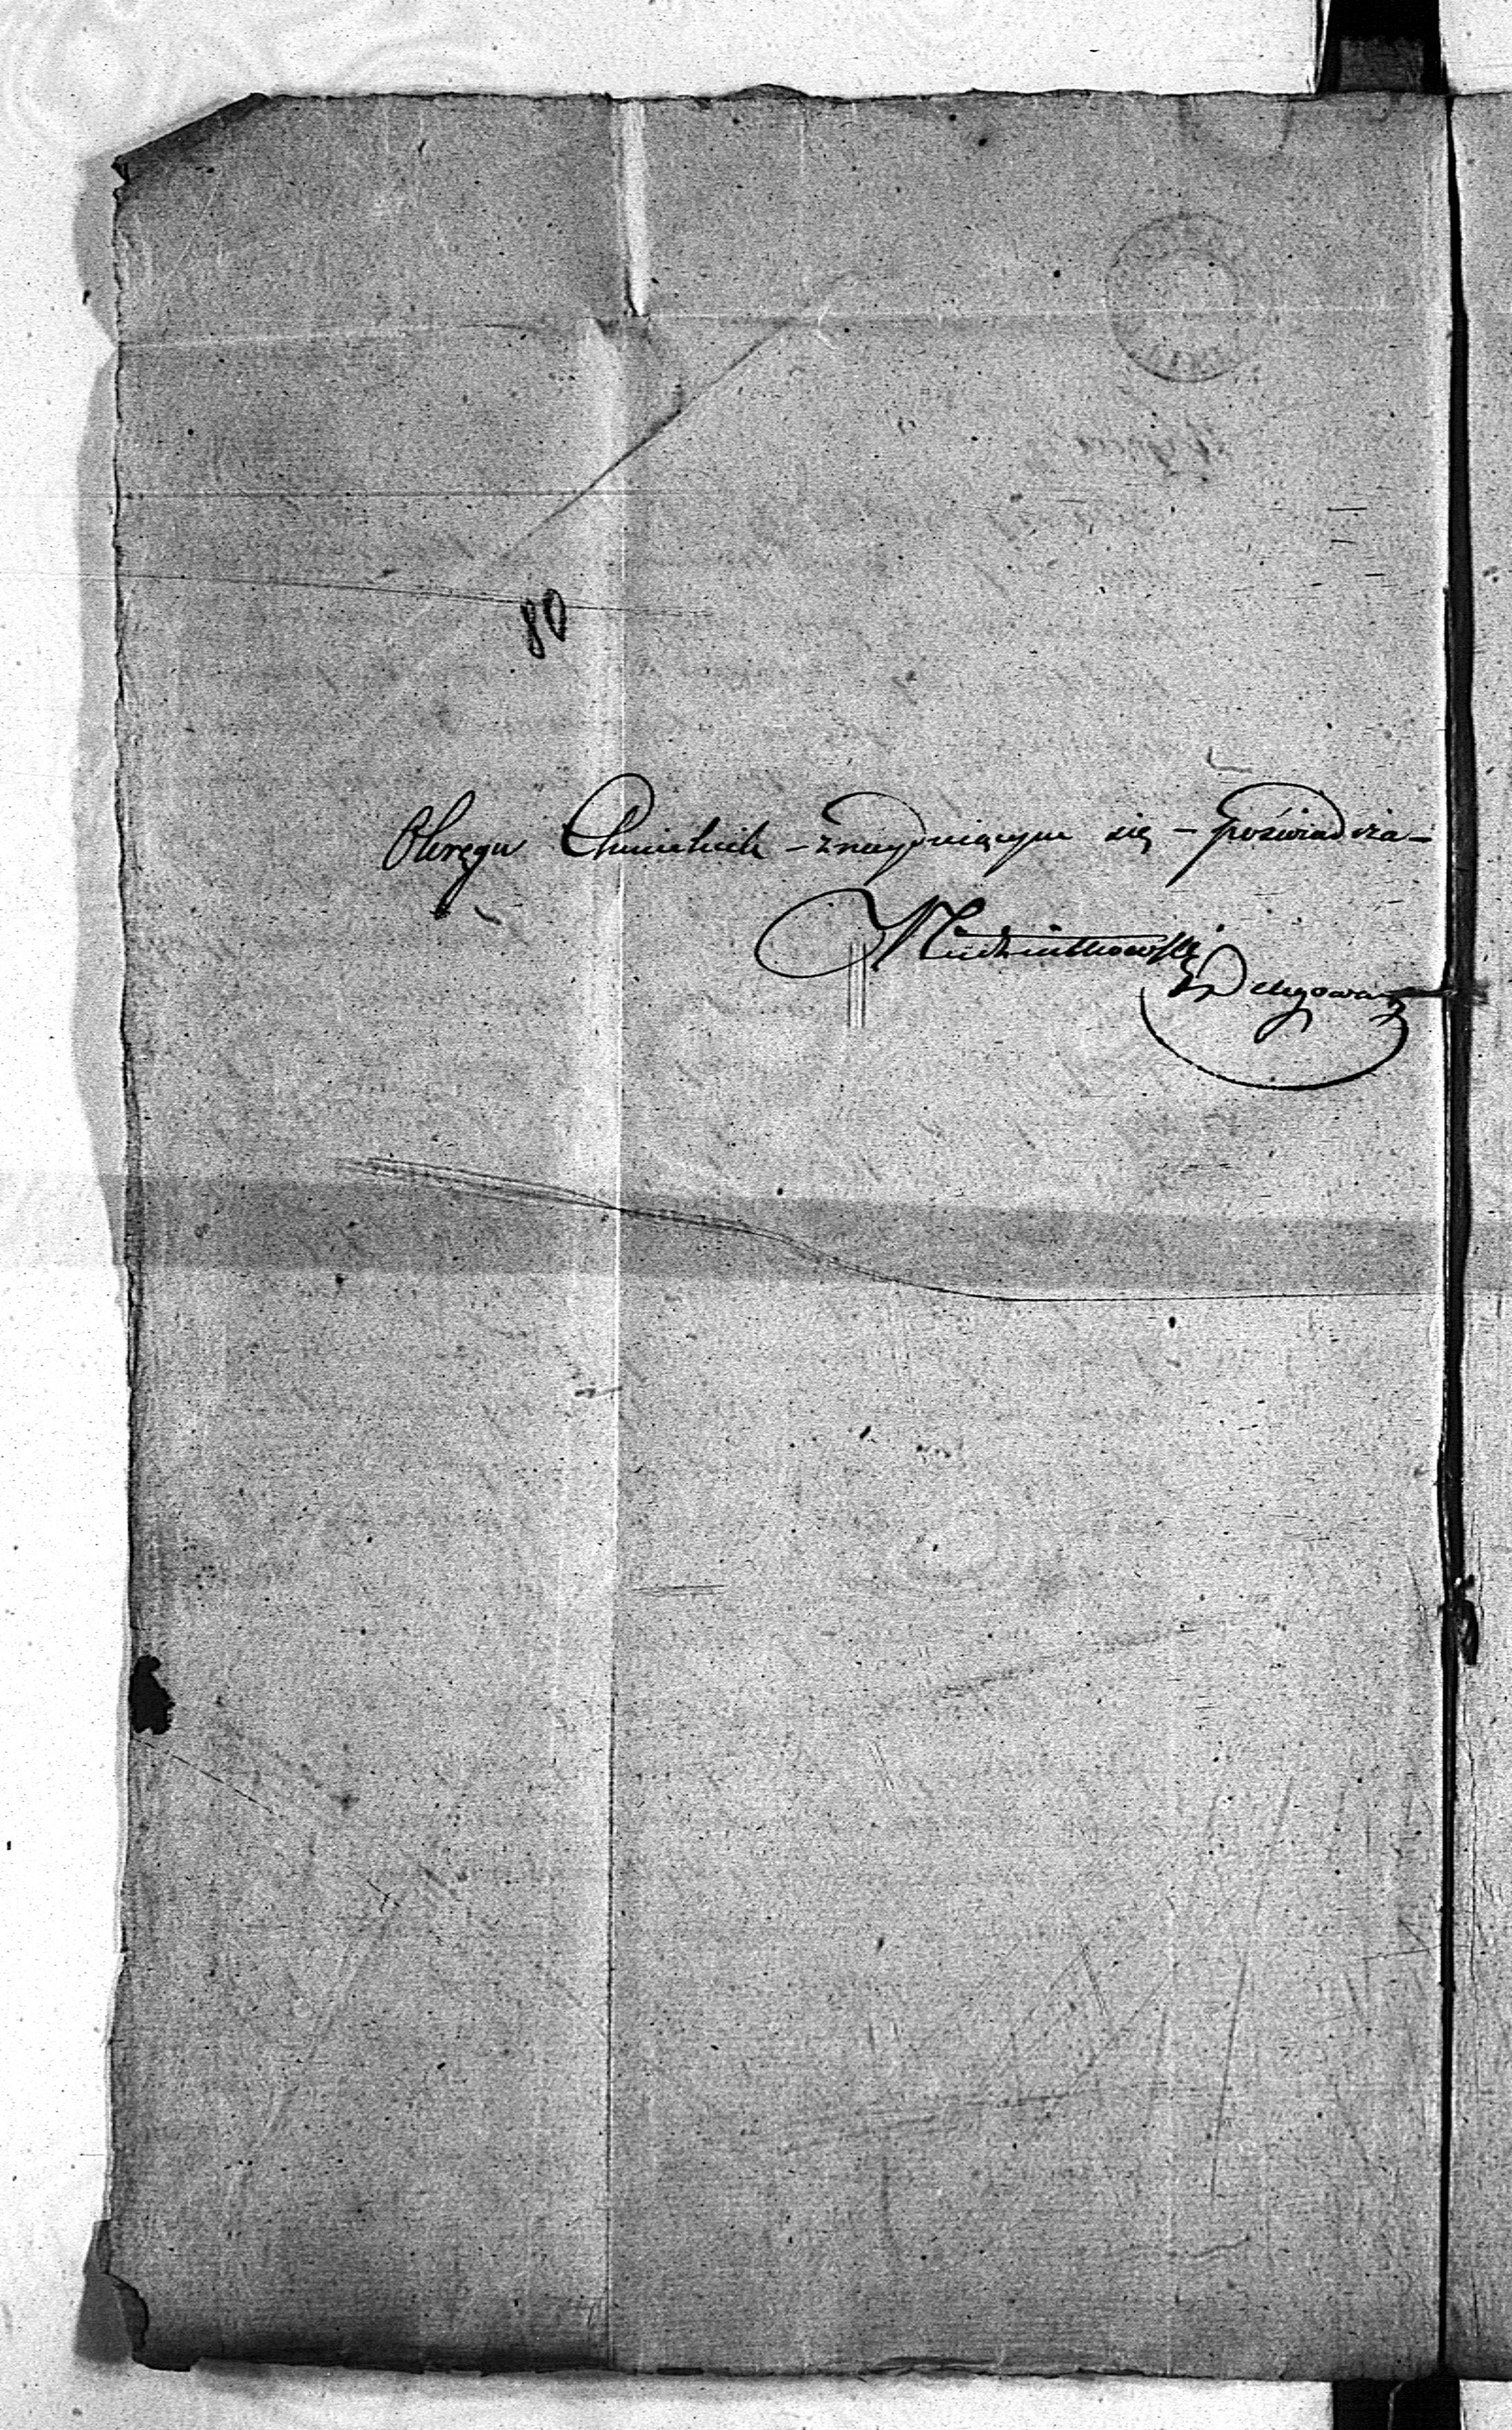 80
Okręgu Chmielnik – znayduiącym się – poświadcza –
Delegowany